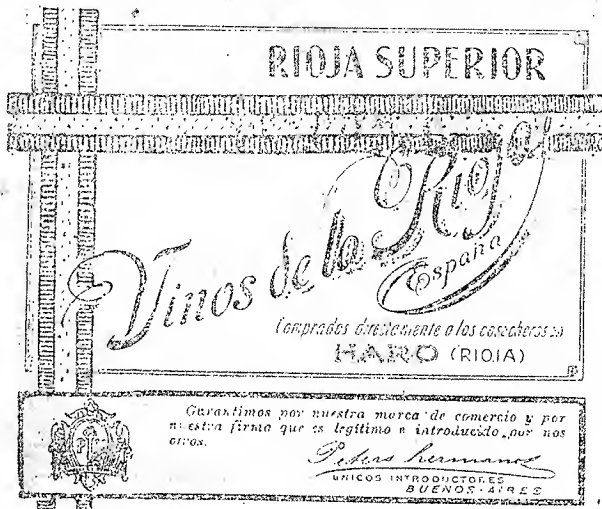 RIOJA SUPERIOR
Vinos de la Rioja
España
Comprados directamente a los cosecheros
HARO (RIOJA)
Garantimos por nuestra marca de comercio y por
nuestra firma que es legítimo e introducido por nos
otros.
Peters hermanos
UNICOS INTRODUCTORES
BUENOS-AIRES